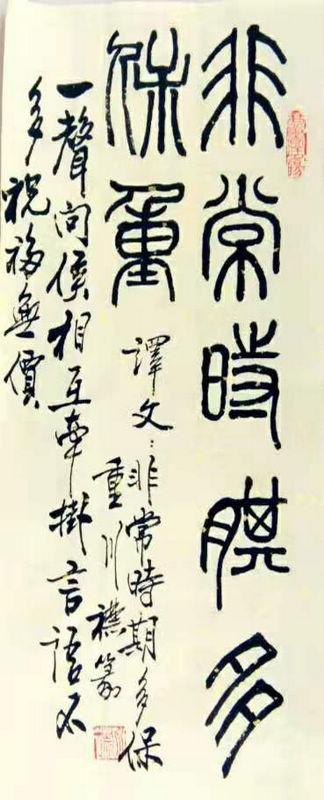 非常時期多
保重
譯文:非常時期多保
重川篆
一聲問候相互牽掛言語不
多祝福無價